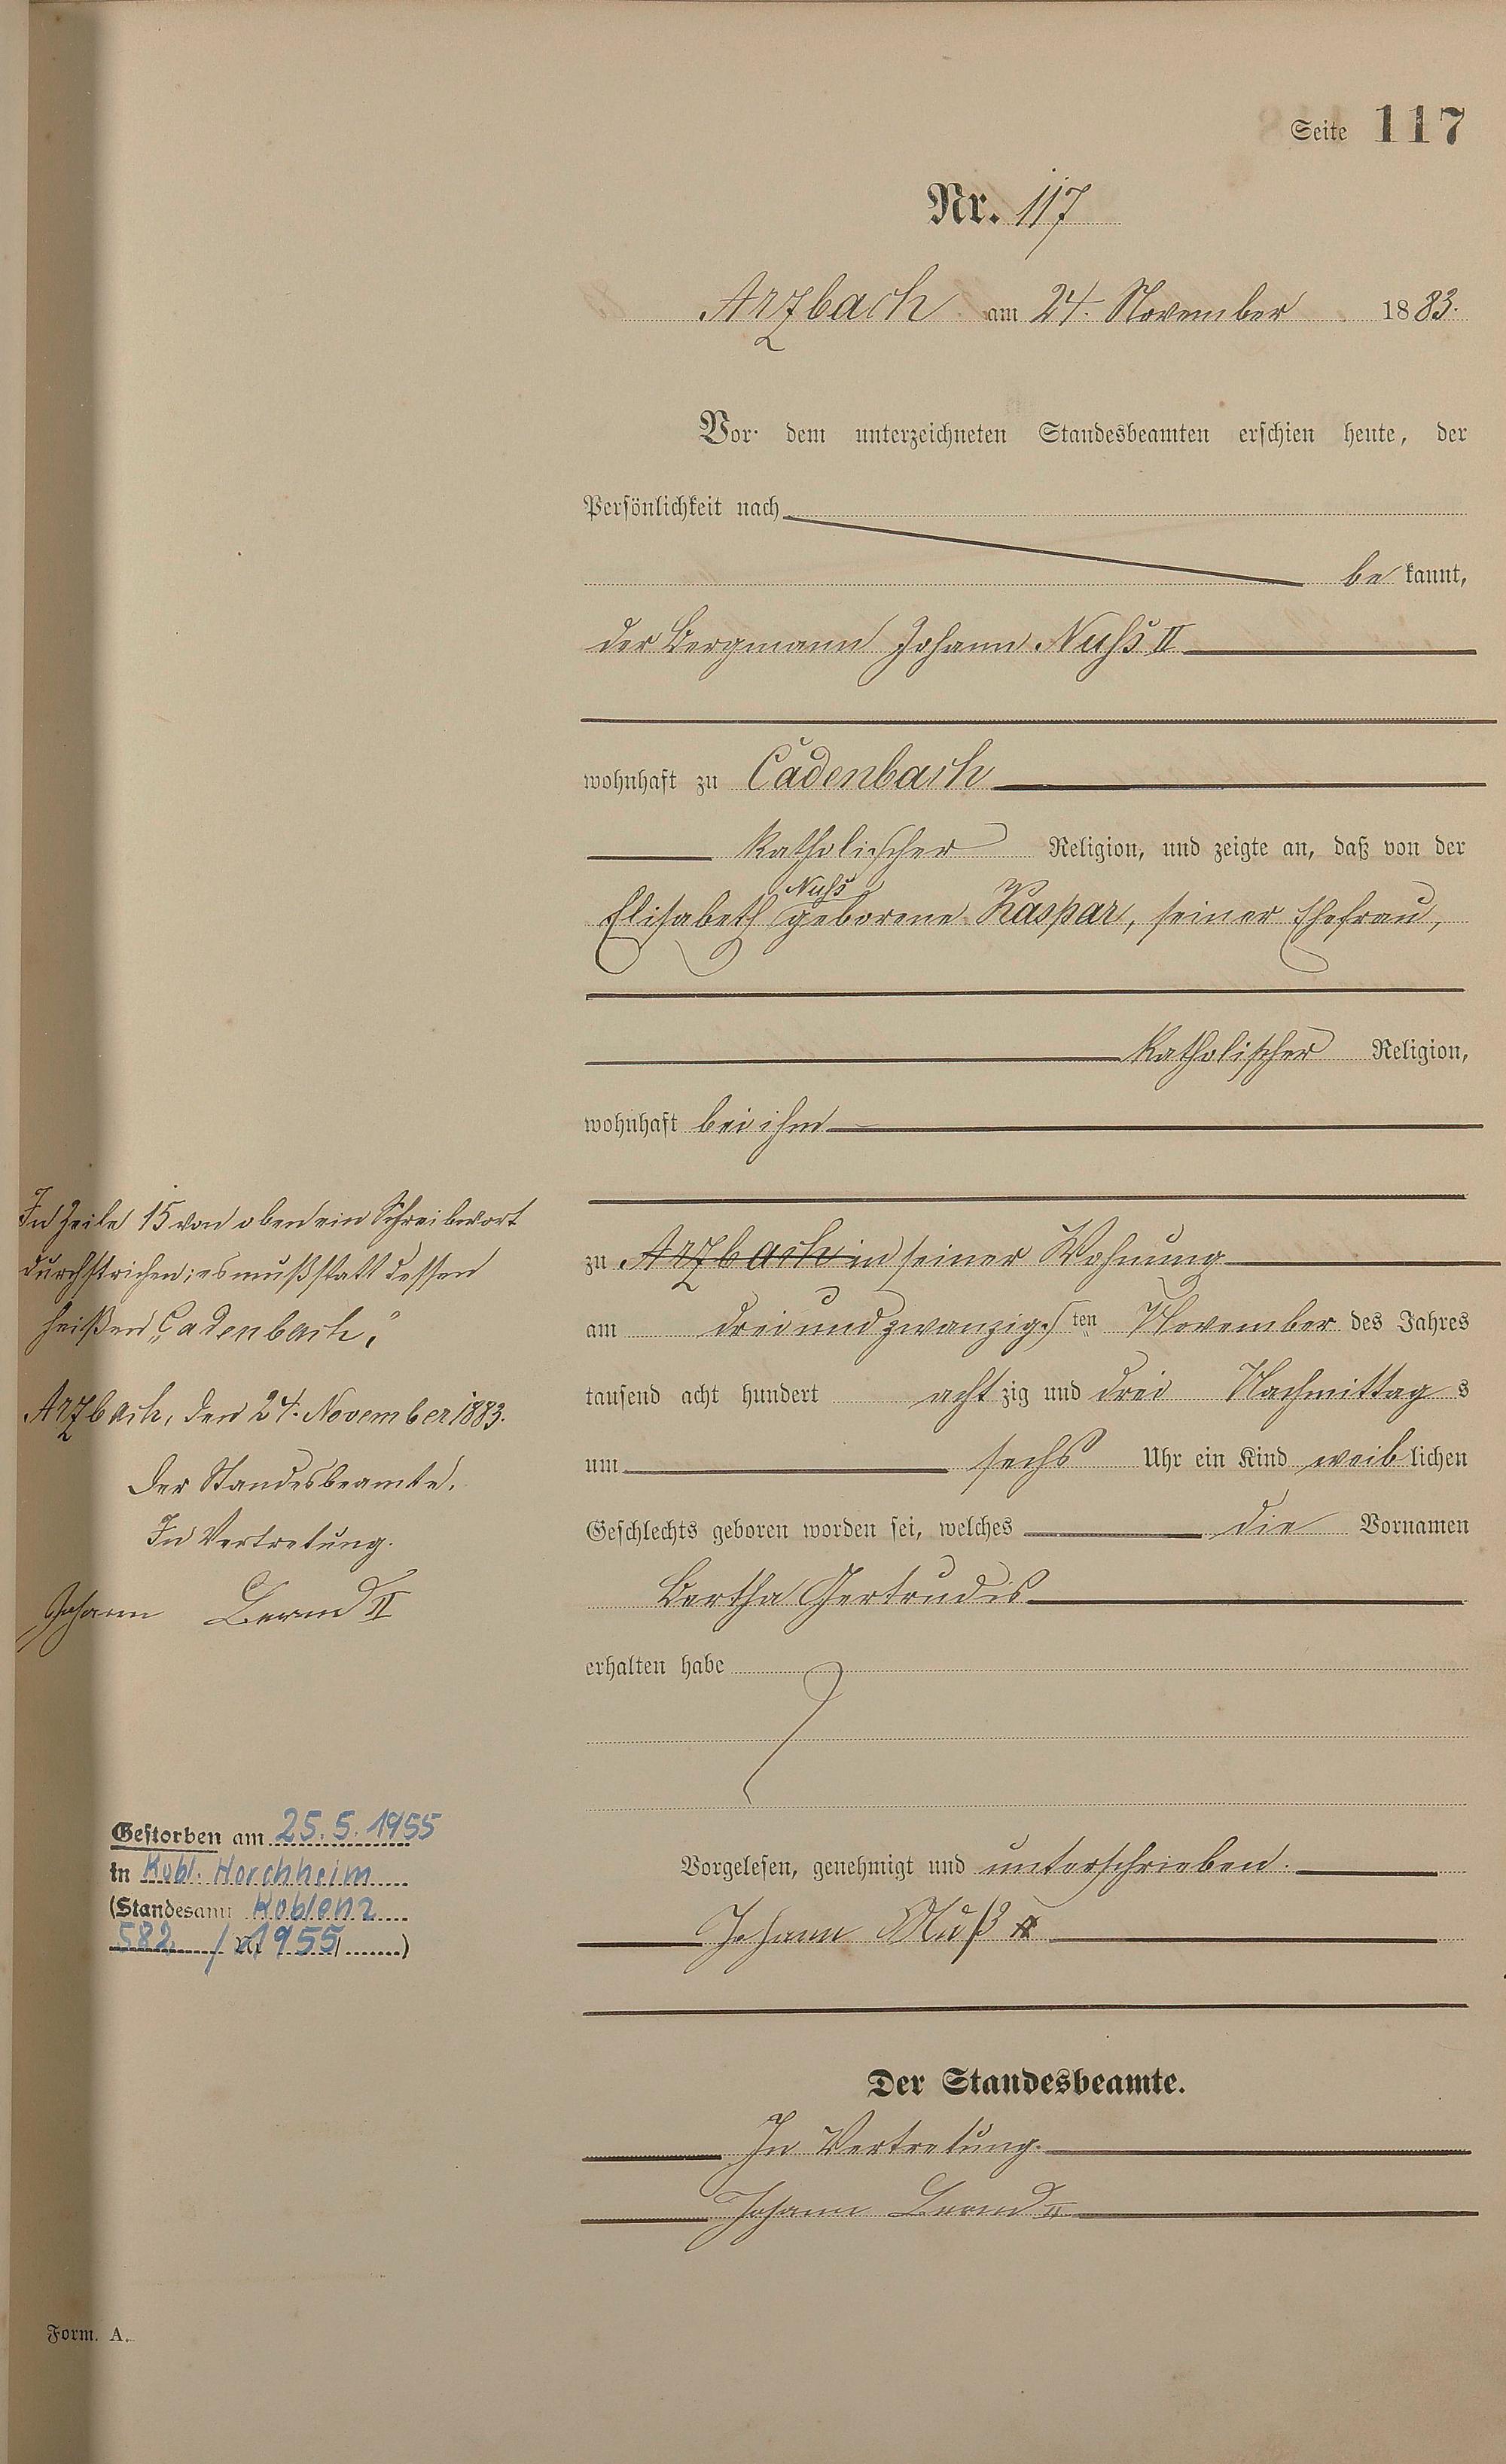 Seite 117
Nr. 117
Arzbach am 24. November 1883.
Vor dem unterzeichneten Standesbeamten erschien heute, der
Persönlichkeit nach
be kannt,
der Bergmann Johann Nuhs II
wohnhaft zu Cadenbach
katholischer Religion, und zeigte an, daß von der
Nuhs
Elisabeth geborene Kaspar, seiner Ehefrau,
katholischer Religion,
wohnhaft bei ihm
zu Arzbach in seiner Wohnung
am drei und zwanzig ten November des Jahres
tausend acht hundert acht zig und drei Nachmittag s
um sechs Uhr ein Kind weib lichen
Geschlechts geboren worden sei, welches die Vornamen
Bertha Gertrudis
erhalten habe
Vorgelesen, genehmigt und unterschrieben.
Johann Nuß II
Der Standesbeamte.
In Vertretung.
Johann Bernd II
In Zeile 15 von oben ein Schreibwort
durchstrichen; es muß statt dessen
heißen „Cadenbach“.
Arzbach, den 24. November 1883.
Der Standesbeamte.
In Vertretung.
Johann Bernd II
Gestorben am 25.5.1955
in Kobl. Horchheim
(Standesamt Koblenz
582 / 1955)
Form. A.